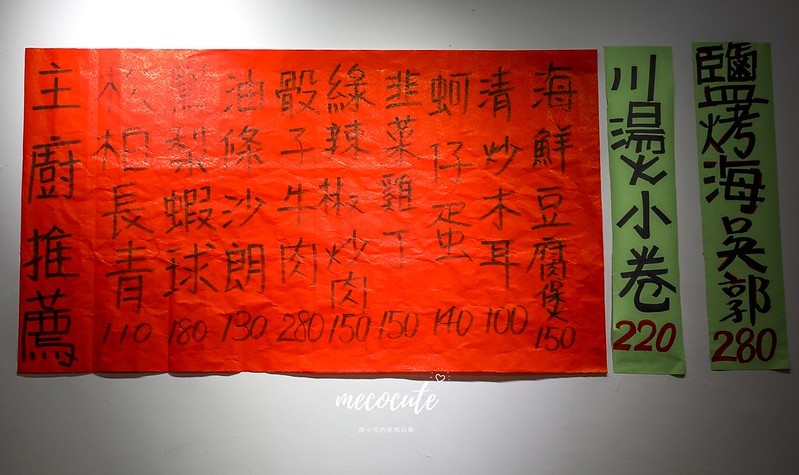 主廚推薦
松柏長青 110
鳳梨蝦球 180
油條沙朗 130
骰子牛肉 280
綠辣椒炒肉 150
韭菜雞丁 150
蚵仔蛋 140
清炒木耳 100
海鮮豆腐煲 150
川燙小卷 220
鹽烤海吳郭 280
mecocute
陳小可的吃喝玩樂